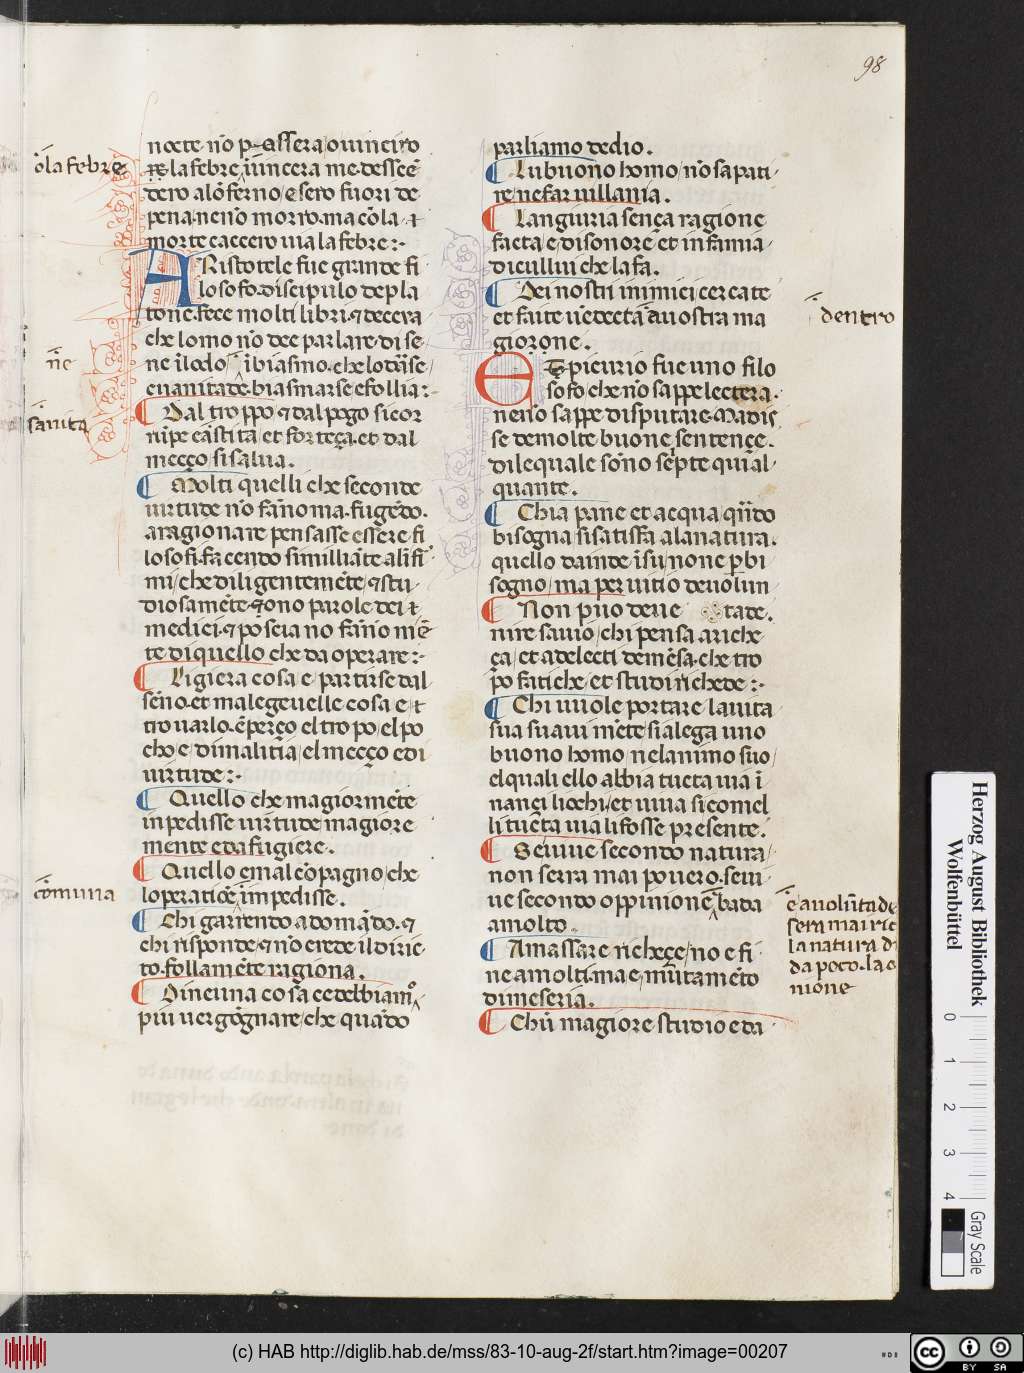 98
nocte nō p assera o uinciro
la febre, iuincera me dessēe
dero alōferno, e sero fuori de
pena nenō morro. ma cōla
morte caccero uia la febre:-
ARistotele fue grande fi
losofo. discipulo de pla
tone. fece molti libri. et deceua
che lomo nō dee parlare di se
ne ī lodo ī biasmo. che lodāse
e uanitade. biasmarse e follia:-
Dal troppo et dal pogo si cor
rūpe cāstita et forteça. et dal
mecço si salua.
Molti quelli che seconde
uirtude nō fāno ma. fugēdo.
a ragionare pensasse essere fi
losofi. facendo simillāte alifi
mi, che diligentemēte, et stu
diosamēte. ono parole dei
medici. et poscia no fāno
te di quello che da operare:-
Ligiera cosa e, partirse dal
sēno. et malegeuelle cosa e
trouarlo. ēperço el tropo, el po
cho e di malitia, el mecço e di
uirtude:-
Quello che magiormēte
inpedisse uirtude magiore
mente e da fugiere.
Quello e mal cōpagno, che
loperatiōe impedisse.
Chi garrendo adomādo. et
chi risponde, et nō crede il diric
to. follamēte ragiona.
Dineuna cosa ce debbiamo
piu uergōgnare, che quādo
parliamo de dio.
Lu buono homo, nō sa pati
re, ne far uillania.
Langiuria sença ragione
facta, e disonore et in famia
di cullui che la fa.
Dei nostri inimici cercate
et faite uēdecta a uostra ma
giorōne.
Epicurio fue uno filo
sofo che nō sappe lectera.
nenō sappe disputare. Ma dis
se de molte buone sentençe.
dile quale sōno scripte qui al
quante.
Chi a pane et acqua quādo
bisogna si satisfa a la natura.
quello da inde ī su, none p bi
sogno, ma per uitio de uolun
tate.
Non puo deue
nire sauio, chi pensa a riche
ça, et a delecti de mēsa. che tro
po fatiche, et studi richede:-
Chi uuole portare la uita
sua suaui mēte si alega uno
buono homo, nel animo suo,
el quali ello abbia tucta uia ī
nançi liochi, et uiua si comel
li tucta uia li fosse presente.
Se iuue secondo natura,
non serra mai pouero. se ui
ue secondo oppinionē bada
a molto.
Amassare richeçe, no e fi
ne a molti. ma e, mutamēto
di meseria.
Chiu magiore studio e da
ōla febre
sāuita
cōmuna
dentro
e a uolūta de
sera mai ric
la natura di
da poco. la o
nione
Herzog August Bibliothek
Wolfenbüttel
0 1 2 3 4
Gray Scale
(c) HAB http://diglib.hab.de/mss/83-10-aug-2f/start.htm?image=00207
cc BY SA